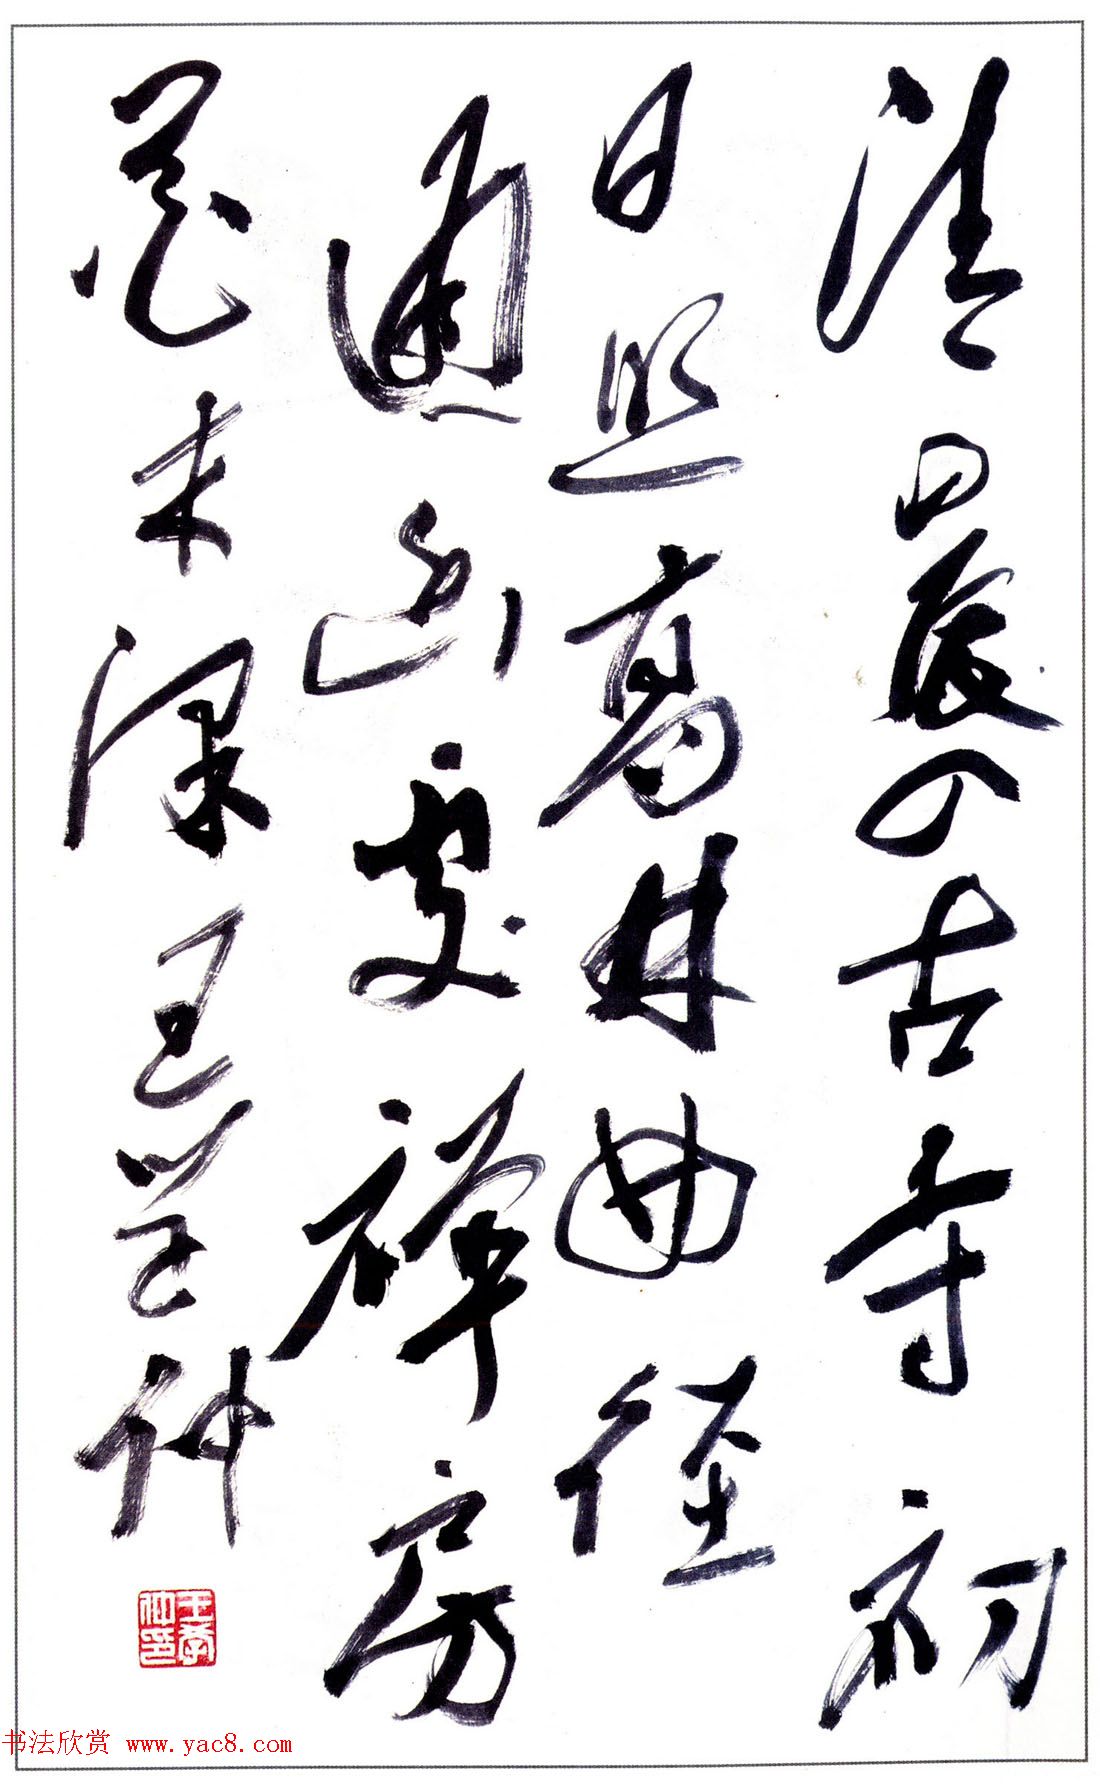 清晨入古寺初
日照高林曲径
通幽處禅房
花木深王学仲
王學仲印
书法欣赏 www.yac8.com